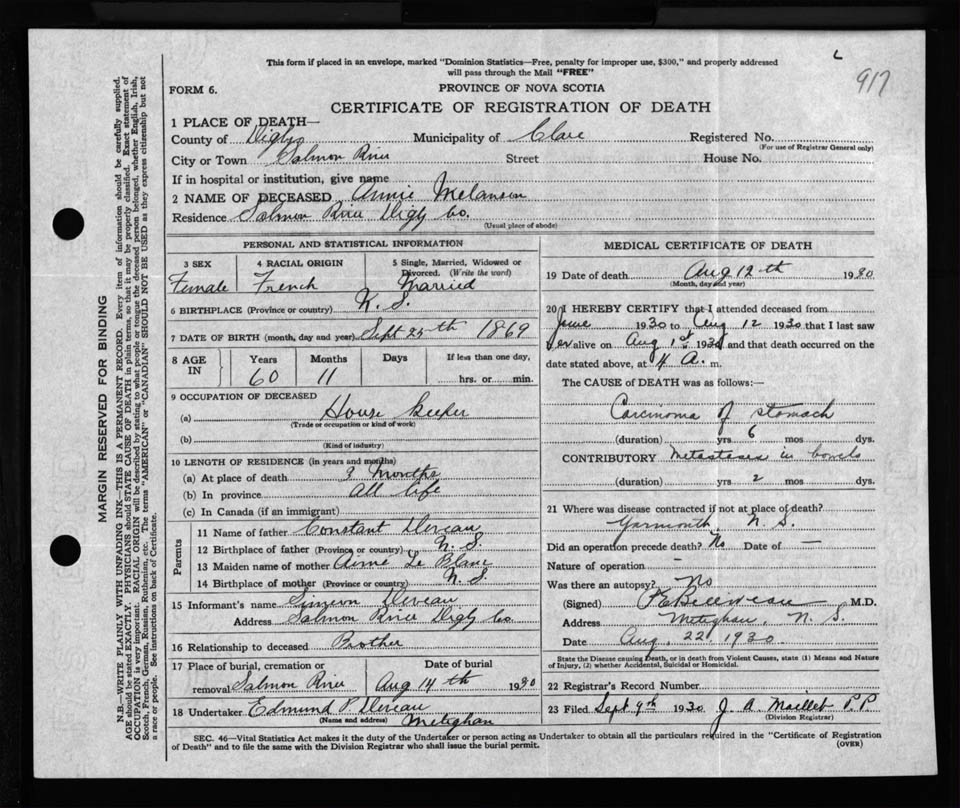 L
917
This form if placed in an envelope, marked "Dominion Statistics—Free, penalty for improper use, $300," and properly addressed
will pass through the Mail "FREE"
FORM 6.
PROVINCE OF NOVA SCOTIA
CERTIFICATE OF REGISTRATION OF DEATH
1 PLACE OF DEATH—
County of Digby Municipality of Clare Registered No.
(For use of Registrar General only)
City or Town Salmon River Street House No.
If in hospital or institution, give name
2 NAME OF DECEASED Annie Melanson
Residence Salmon River Digby Co.
(Usual place of abode)
PERSONAL AND STATISTICAL INFORMATION
3 SEX
Female
4 RACIAL ORIGIN
French
5 Single, Married, Widowed or
Divorced. (Write the word)
Married
6 BIRTHPLACE (Province or country) N. S.
7 DATE OF BIRTH (month, day and year) Sept 25th 1869
8 AGE IN
Years Months Days If less than one day,
60 11 hrs. or min.
9 OCCUPATION OF DECEASED
(a) House keeper
(Trade or occupation or kind of work)
(b)
(Kind of industry)
10 LENGTH OF RESIDENCE (in years and months)
(a) At place of death 3 Months
(b) In province All life
(c) In Canada (if an immigrant)
Parents
11 Name of father Constant Deveau
12 Birthplace of father (Province or country) N. S.
13 Maiden name of mother Anne Le Blanc
14 Birthplace of mother (Province or country) N. S.
15 Informant's name Simeon Deveau
Address Salmon River Digby Co
16 Relationship to deceased Brother
17 Place of burial, cremation or
removal Salmon River
Date of burial
Aug 14th 1930
18 Undertaker Edmund P Deveau
(Name and address) Meteghan
MEDICAL CERTIFICATE OF DEATH
19 Date of death Aug 12th 1930
(Month, day and year)
20 I HEREBY CERTIFY that I attended deceased from
June 1930 to Aug 12 1930 that I last saw
her alive on Aug 1st 1930 and that death occurred on the
date stated above, at 4 A. m.
The CAUSE of DEATH was as follows:—
Carcinoma of stomach
(duration) yrs 6 mos dys.
CONTRIBUTORY Metastases in bowels
(duration) yrs 2 mos dys.
21 Where was disease contracted if not at place of death?
Yarmouth, N. S.
Did an operation precede death? No Date of —
Nature of operation —
Was there an autopsy? No
(Signed) M.D.
Address Meteghan, N. S.
Date Aug. 22 1930
State the Disease causing Death, or in death from Violent Causes, state (1) Means and Nature
of Injury, (2) whether Accidental, Suicidal or Homicidal.
22 Registrar's Record Number
23 Filed Sept 9th 1930 J. A. Maillet P.P.
(Division Registrar)
SEC. 46—Vital Statistics Act makes it the duty of the Undertaker or person acting as Undertaker to obtain all the particulars required in the "Certificate of Registration
of Death" and to file the same with the Division Registrar who shall issue the burial permit.
(OVER)
MARGIN RESERVED FOR BINDING
N.B.—WRITE PLAINLY WITH UNFADING INK—THIS IS A PERMANENT RECORD. Every item of information should be carefully supplied.
AGE should be stated EXACTLY. PHYSICIANS should STATE CAUSE OF DEATH in plain terms, so that it may be properly classified. Exact statement of
OCCUPATION is very important. RACIAL ORIGIN will be described by stating to what people or tongue the deceased person belonged, whether English, Irish,
Scotch, French, German, Russian, Ruthenian, etc. The terms "AMERICAN" or "CANADIAN" SHOULD NOT BE USED as they express citizenship but not
a race or people. See instructions on back of Certificate.